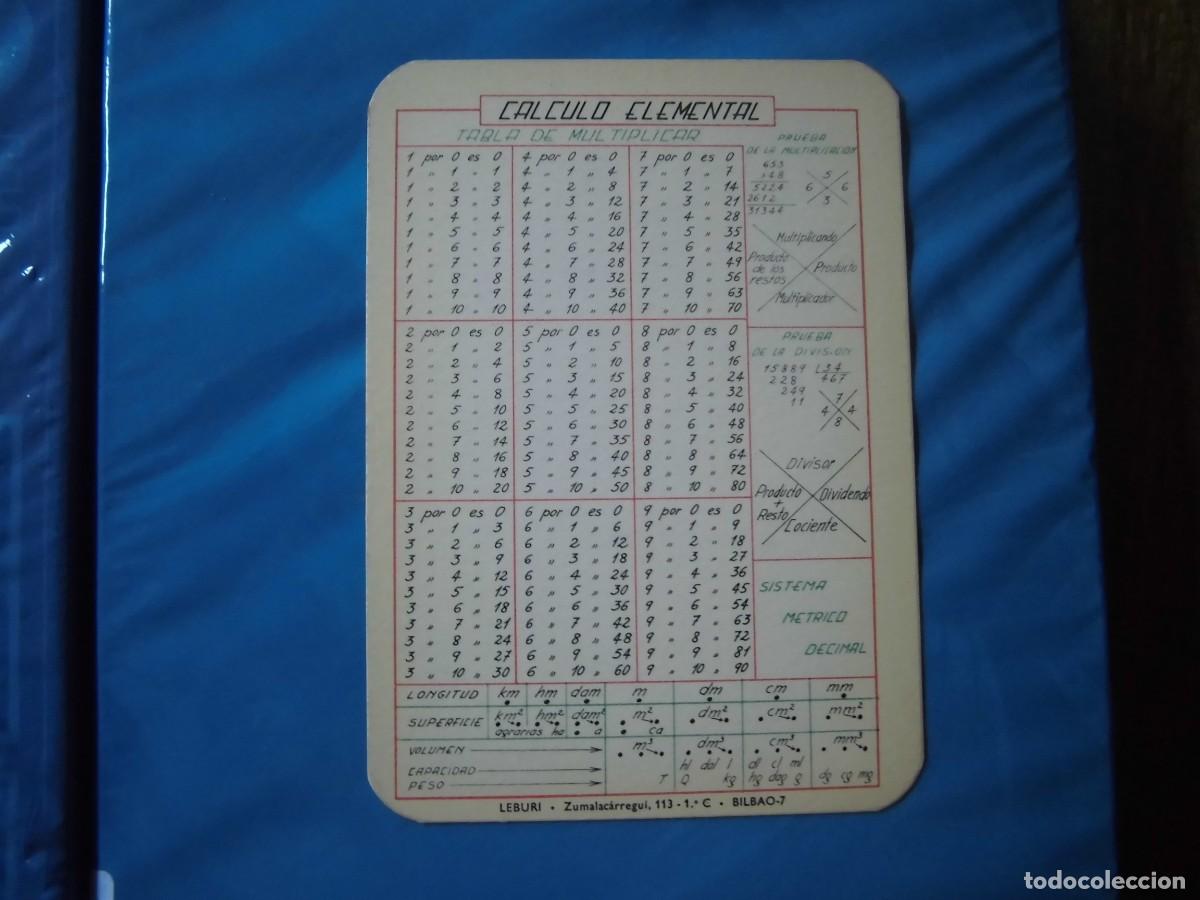 CALCULO ELEMENTAL
TABLA DE MULTIPLICAR
1 por 0 es 0
1 " 1 " 1
1 " 2 " 2
1 " 3 " 3
1 " 4 " 4
1 " 5 " 5
1 " 6 " 6
1 " 7 " 7
1 " 8 " 8
1 " 9 " 9
1 " 10 " 10
4 por 0 es 0
4 " 1 " 4
4 " 2 " 8
4 " 3 " 12
4 " 4 " 16
4 " 5 " 20
4 " 6 " 24
4 " 7 " 28
4 " 8 " 32
4 " 9 " 36
4 " 10 " 40
7 por 0 es 0
7 " 1 " 7
7 " 2 " 14
7 " 3 " 21
7 " 4 " 28
7 " 5 " 35
7 " 6 " 42
7 " 7 " 49
7 " 8 " 56
7 " 9 " 63
7 " 10 " 70
PRUEBA
DE LA MULTIPLICACION
653
x48
5224
2612
31344
5
6 6
3
Multiplicando
Producto de los restos
Producto
Multiplicador
2 por 0 es 0
2 " 1 " 2
2 " 2 " 4
2 " 3 " 6
2 " 4 " 8
2 " 5 " 10
2 " 6 " 12
2 " 7 " 14
2 " 8 " 16
2 " 9 " 18
2 " 10 " 20
5 por 0 es 0
5 " 1 " 5
5 " 2 " 10
5 " 3 " 15
5 " 4 " 20
5 " 5 " 25
5 " 6 " 30
5 " 7 " 35
5 " 8 " 40
5 " 9 " 45
5 " 10 " 50
8 por 0 es 0
8 " 1 " 8
8 " 2 " 16
8 " 3 " 24
8 " 4 " 32
8 " 5 " 40
8 " 6 " 48
8 " 7 " 56
8 " 8 " 64
8 " 9 " 72
8 " 10 " 80
PRUEBA
DE LA DIVISION
15889 34
228 467
249
11
7
4 4
8
Divisor
Producto + Resto
Dividendo
Cociente
3 por 0 es 0
3 " 1 " 3
3 " 2 " 6
3 " 3 " 9
3 " 4 " 12
3 " 5 " 15
3 " 6 " 18
3 " 7 " 21
3 " 8 " 24
3 " 9 " 27
3 " 10 " 30
6 por 0 es 0
6 " 1 " 6
6 " 2 " 12
6 " 3 " 18
6 " 4 " 24
6 " 5 " 30
6 " 6 " 36
6 " 7 " 42
6 " 8 " 48
6 " 9 " 54
6 " 10 " 60
9 por 0 es 0
9 " 1 " 9
9 " 2 " 18
9 " 3 " 27
9 " 4 " 36
9 " 5 " 45
9 " 6 " 54
9 " 7 " 63
9 " 8 " 72
9 " 9 " 81
9 " 10 " 90
SISTEMA
METRICO
DECIMAL
LONGITUD km hm dam m dm cm mm
SUPERFICIE km² hm² dam² m² dm² cm² mm²
agrarias ha a ca
VOLUMEN m³ dm³ cm³ mm³
CAPACIDAD hl dal l dl cl ml
PESO T Q kg hg dag g dg cg mg
LEBURI • Zumalacárregui, 113 - 1.º C • BILBAO-7
todocoleccion